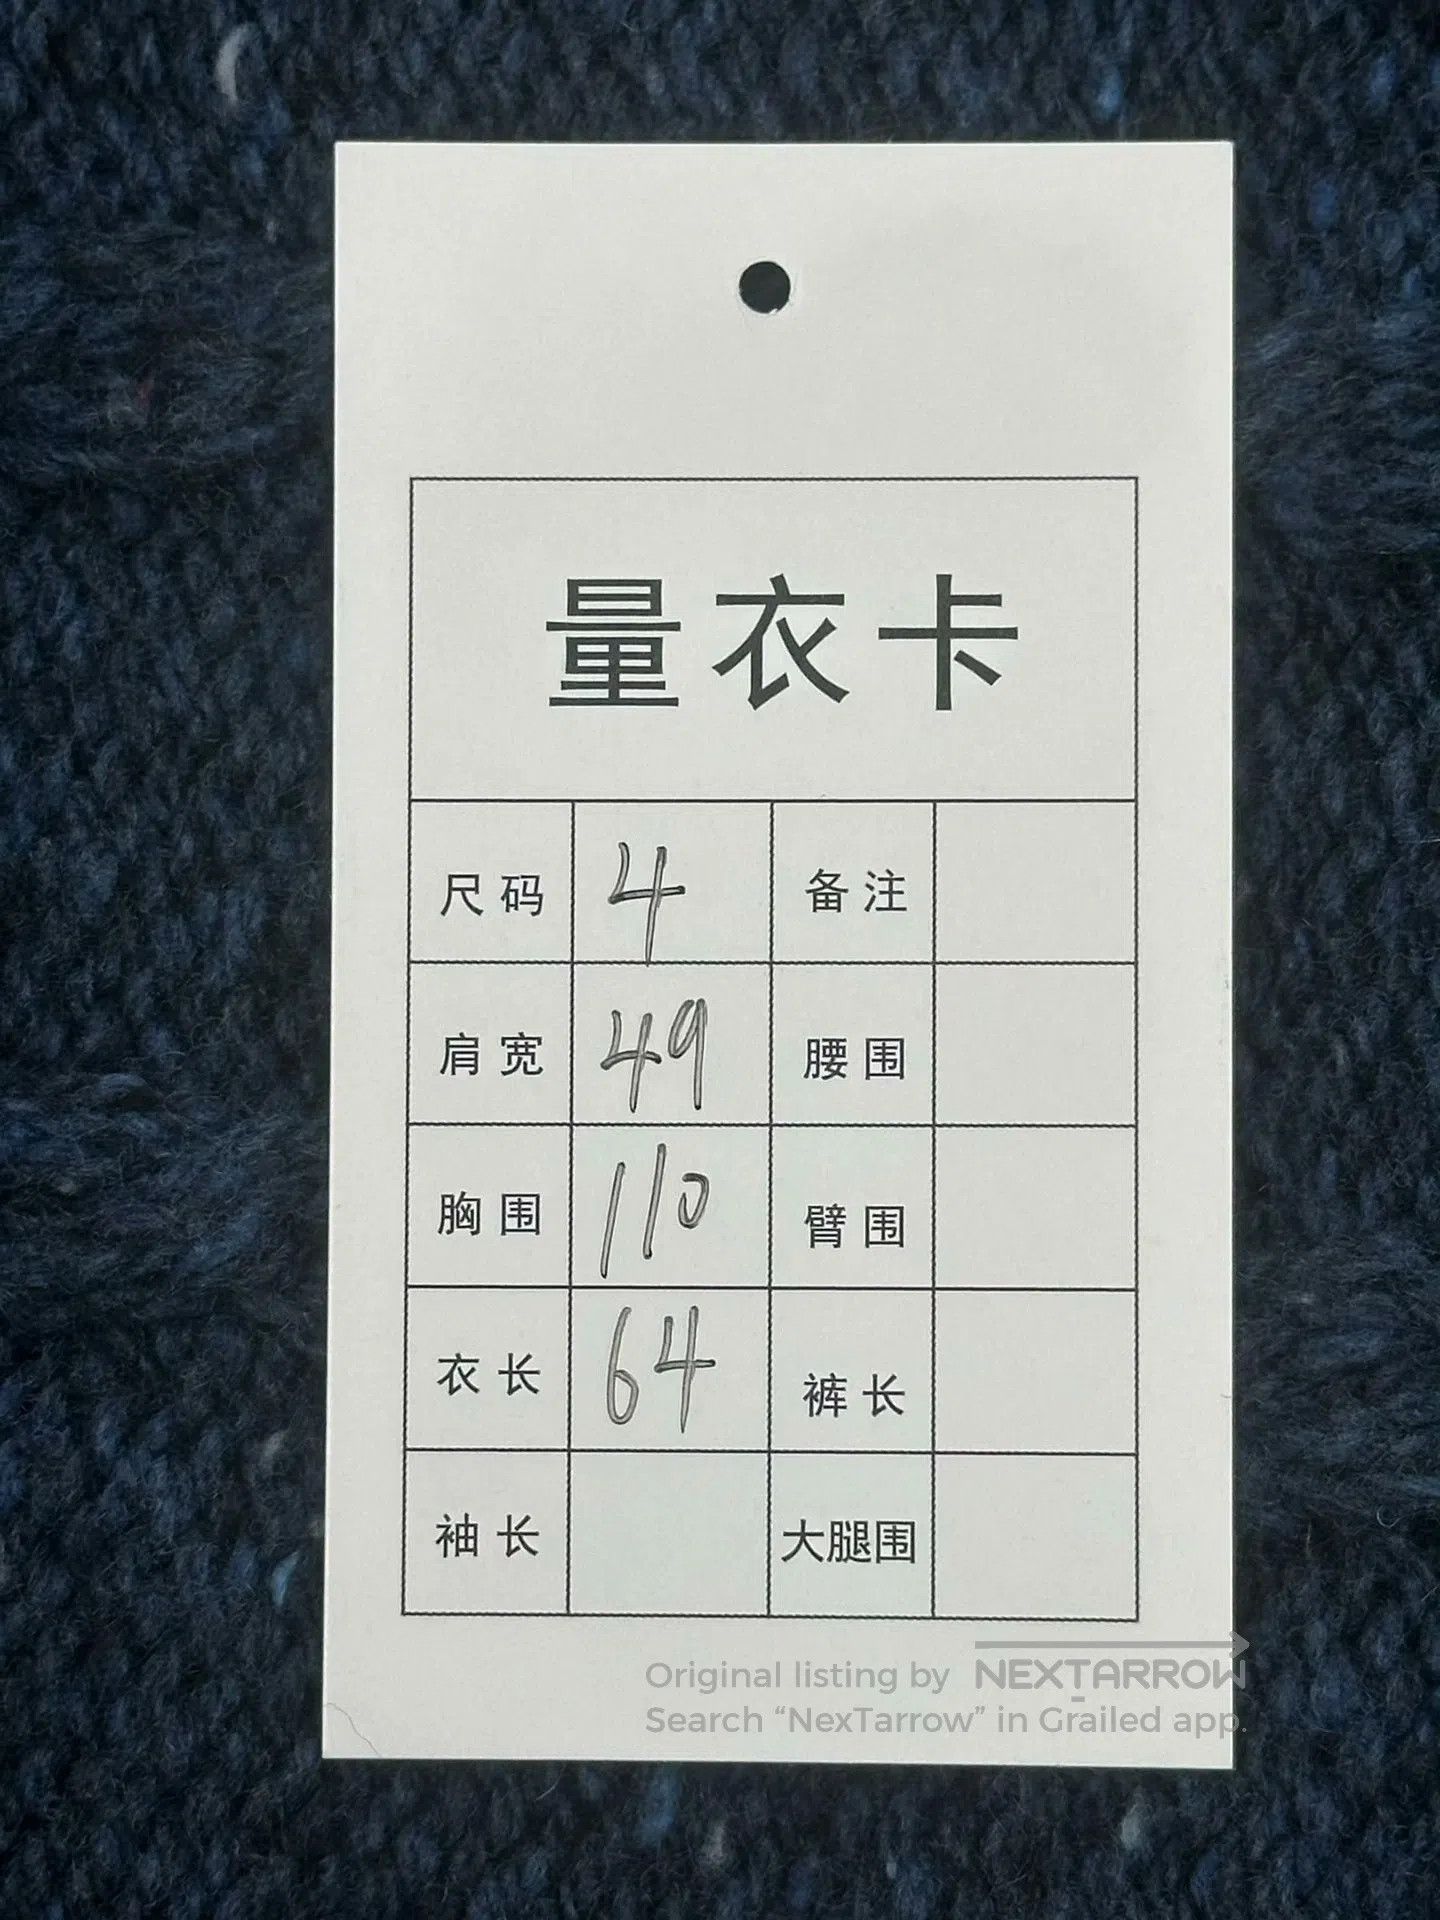 量衣卡
尺码 4 备注
肩宽 49 腰围
胸围 110 臂围
衣长 64 裤长
袖长 大腿围
Original listing by NEXTARROW
Search “NexTarrow” in Grailed app.